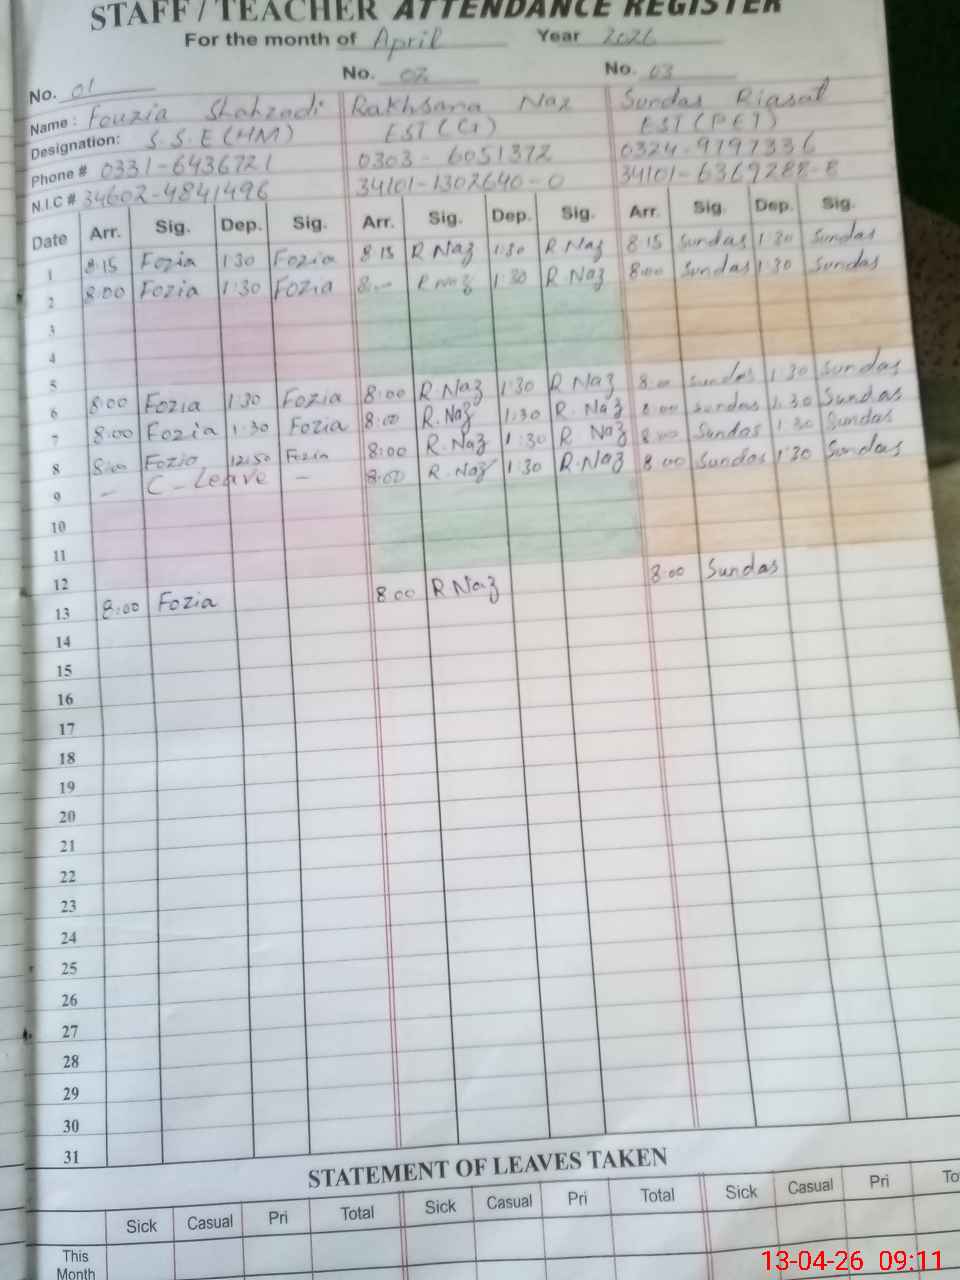 STAFF / TEACHER ATTENDANCE REGISTER
For the month of April Year 2026
No. 01 No. 02 No. 03
Name : Fouzia Shahzadi Rakhsana Naz Sundas Riasat
Designation: S.S.E (HM) EST (G) EST (PET)
Phone # 0331-6436721 0303-6051372 0324-9797336
N.I.C # 34602-4841496 34101-1302640-0 34101-6369288-8
Date Arr. Sig. Dep. Sig. Arr. Sig. Dep. Sig. Arr. Sig. Dep. Sig.
1 8:15 Fozia 1:30 Fozia 8:15 R Naz 1:30 R Naz 8:15 Sundas 1:30 Sundas
2 8:00 Fozia 1:30 Fozia 8:- R naz 1:30 R Naz 8:00 Sundas 1:30 Sundas
3
4
5
6 8:00 Fozia 1:30 Fozia 8:00 R.Naz 1:30 R Naz 8:00 Sundas 1:30 Sundas
7 8:00 Fozia 1:30 Fozia 8:00 R.Naz 1:30 R. Naz 8:00 Sundas 1:30 Sundas
8 8:00 Fozia 12:50 Fozia 8:00 R.Naz 1:30 R Naz 8:00 Sundas 1:30 Sundas
9 - C-Leave - 8:00 R.Naz 1:30 R.Naz 8:00 Sundas 1:30 Sundas
10
11
12
13 8:00 Fozia 8:00 R Naz 8:00 Sundas
14
15
16
17
18
19
20
21
22
23
24
25
26
27
28
29
30
31
STATEMENT OF LEAVES TAKEN
Sick Casual Pri Total Sick Casual Pri Total Sick Casual Pri
This
Month
13-04-26 09:11